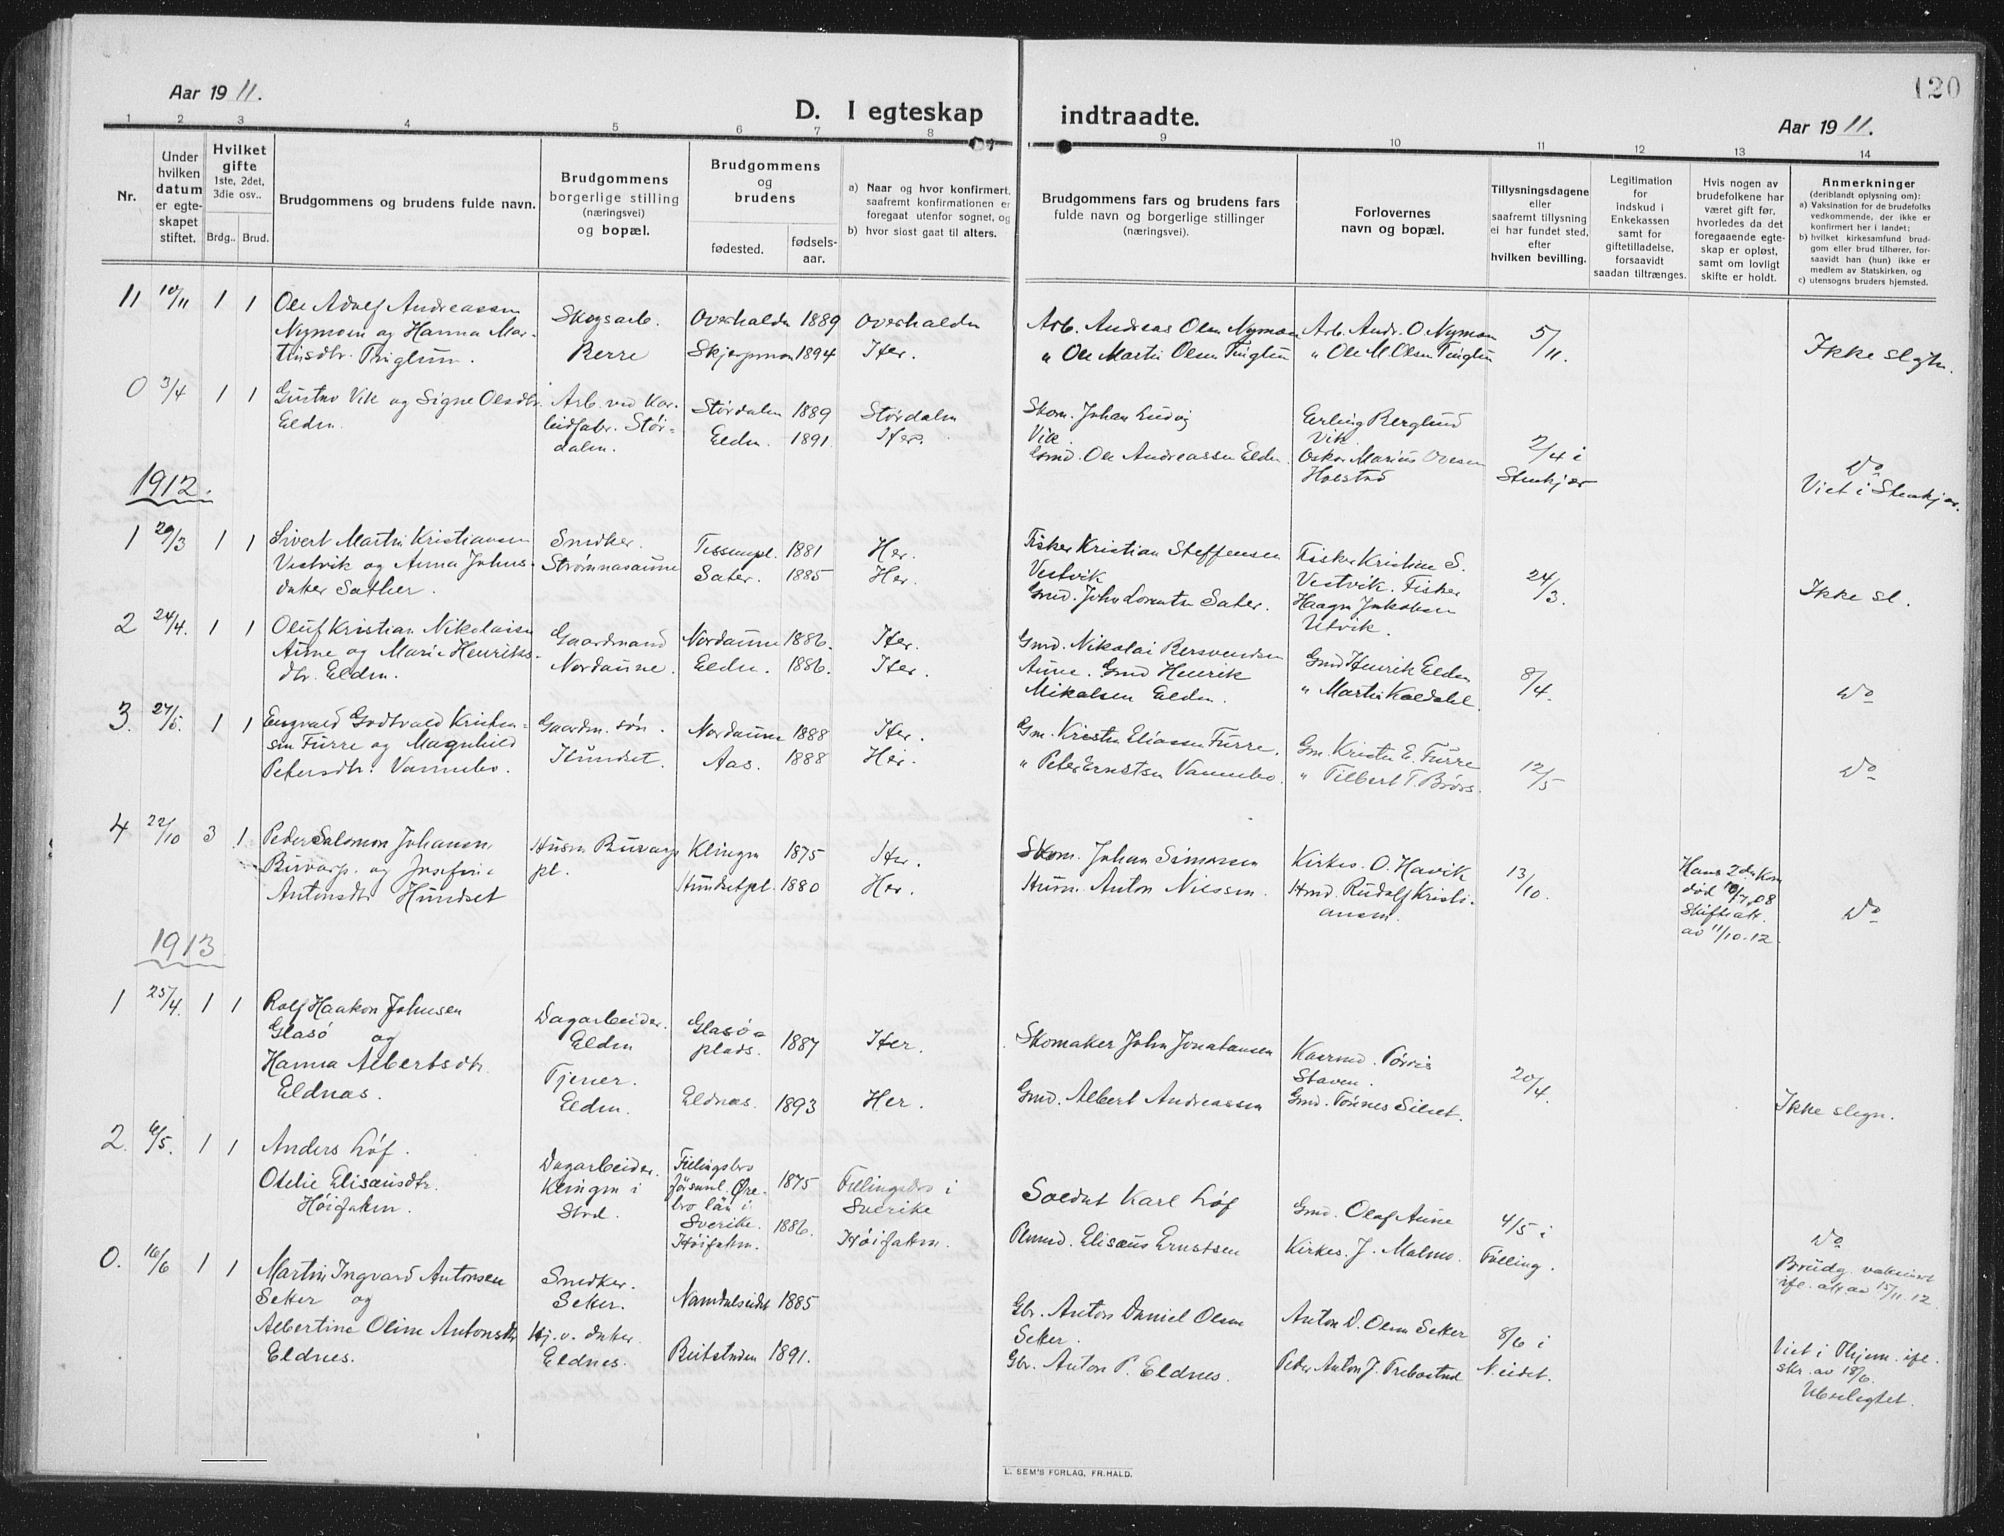 120
Aar 19 11.
D. I egteskap indtraadte.
Aar 19 11.
1 2 3 4 5 6 7 8 9 10 11 12 13 14
Nr.
Under
hvilken
datum
er egte-
skapet
stiftet.
Hvilket
gifte
1ste, 2det,
3die osv..
Brdg.. Brud.
Brudgommens og brudens fulde navn.
Brudgommens
borgerlige stilling
(næringsvei)
og bopæl.
Brudgommens
og
brudens
fødested.
fødsels-
aar.
a) Naar og hvor konfirmert,
saafremt konfirmationen er
foregaat utenfor sognet, og
b) hvor sidst gaat til alters.
Brudgommens fars og brudens fars
fulde navn og borgerlige stillinger
(næringsvei).
Forlovernes
navn og bopæl.
Tillysningsdagene
eller
saafremt tillysning
ei har fundet sted,
efter
hvilken bevilling.
Legitimation
for
indskud i
Enkekassen
samt for
giftetilladelse,
forsaavidt
saadan tiltrænges.
Hvis nogen av
brudefolkene har
været gift før,
hvorledes da det
foregaaende egte-
skap er opløst,
samt om lovligt
skifte er holdt.
Anmerkninger
(deriblandt oplysning om):
a) Vaksination for de brudefolks
vedkommende, der ikke er
konfirmert her i landet;
b) hvilket kirkesamfund brud-
gom eller brud tilhører, for-
saavidt han (hun) ikke er
medlem av Statskirken, og
c) utensogns bruders hjemsted.
11 10/11 1 1
Ole Adolf Andreassen
Nymoen og Hanna Mar-
tinsdtr. Tinglum.
Skogsarb.
Berre
Overhalden 1889 Overhalden
1894 Her.
Arb. Andreas Olsen Nymoen
" Ole Martin Olsen Tinglum
Arb. Andr. O Nymoen
" Ole M. Olsen Tinglum
5/11.
Ikke slgtn.
0 3/4 1 1
Gustav Vik og Signe Olsdtr.
Elden.
Arb. ved Kar-
bidfabr. Stør-
dalen.
Størdalen 1889 Størdalen
Elden. 1891. Her.
Skom. Johan Ludvig
Vik.
Gmd. Ole Andreassen Elden.
Erling Berglund
Vik.
Oskar Marius Ovesen
Holstad
2/4 i
Stenkjær
Do
Viet i Stenkjær.
1912.
1 20/3 1 1
Sivert Martin Kristiansen
Vestvik og Anna Johns-
datter Sather.
Snedker.
Strømnasaune
1881 Her.
Sater. 1885 Her.
Fisker Kristian Steffensen
Vestvik
Gmd. John Lorentsen Sater.
Fisker Kristian S.
Vestvik. Fisker
Haagen Jakobsen
Utvik.
24/3.
Ikke sl.
2 24/4. 1 1
Oluf Kristian Nikolaisen
Aune og Marie Henriks-
dtr. Elden.
Gaardmand
Nordaune.
Nordaune 1886. Her.
Elden. 1886. Her.
Gmd. Nikolai Bersvendsen
Aune. Gmd Henrik
Mikalsen Elden.
Gmd Henrik Elden
" Martin Kaldahl.
8/4.
Do
3. 27/5. 1 1
Engvald Godtvald Kristen-
sen Furre og Magnhild
Petersdtr. Vannebo.
Gaardm. søn.
Hundset.
Nordaune 1888 Her.
Aas. 1888 Her.
Gm. Kristen Eliassen Furre.
" Peter Ernstsen Vannebo.
Gm. Kristen E. Furre
" Tilbert T. Brørs.
12/5
Do
4 22/10 3 1
Peder Salomon Johansen
Buvarp. og Josefine
Antonsdtr Hundset
Husm Buvarp
pl.
Klingen 1875 Her.
Hundsetpl. 1880 Her.
Skom. Johan Simonsen
Husm. Anton Nilssen.
Kirkes. O. Havik
Hmd. Rudolf Kristi-
ansen.
13/10.
Hans 2den kone
død 10/7.08
Skifteatt.
av 11/10.12.
Do
1913
1 25/4. 1 1
Rolf Haakon Johnsen
Glasø og
Hanna Albertsdtr.
Eldnas.
Dagarbeider.
Elden
Tjener.
Elden.
Glasø-
plads. 1887 Her.
Eldnas. 1893 Her.
Skomaker John Jonatansen
Gmd. Albert Andreassen
Kaarmd. Tørris
Staven.
Gmd. Tønnes Silset.
20/4.
Ikke slegn.
2. 6/5. 1 1
Anders Löf.
Otelie Elisæusdtr.
Høifalm.
Dagarbeider.
Klingen i
Stod.
Fellingsbro
Øre-
bro län i
Sverike. 1875
Høifalm. 1886.
Fellingsbro i
Sverike
Høifalm.
Soldat Karl Löf
Elisæus Ernstsen
Gmd. Olaf Aune
Kirkes. J. Malmo.
4/5 i
Følling.
Do
Brudg. vaksinert
ifl. att av 15/11.12.
0. 16/6 1 1
Martin Ingvard Antonsen
Seker og
Albertine Oline Antonsdtr
Eldnes.
Snedker.
Seker.
Hj.v. datter
Eldnes.
Namdalseidet 1885
Beitstaden 1891.
Gbr. Anton Daniel Olsen
Seker.
Gbr. Anton P. Eldnes.
Anton D. Olsen Seker
Peder Anton J. Trebostad
8/6 i
N.eidet.
Viet i Thjem. ifl.
skr. av 18/6.
Ubeslegtet.
E. SEM'S FORLAG, FR.HALD.